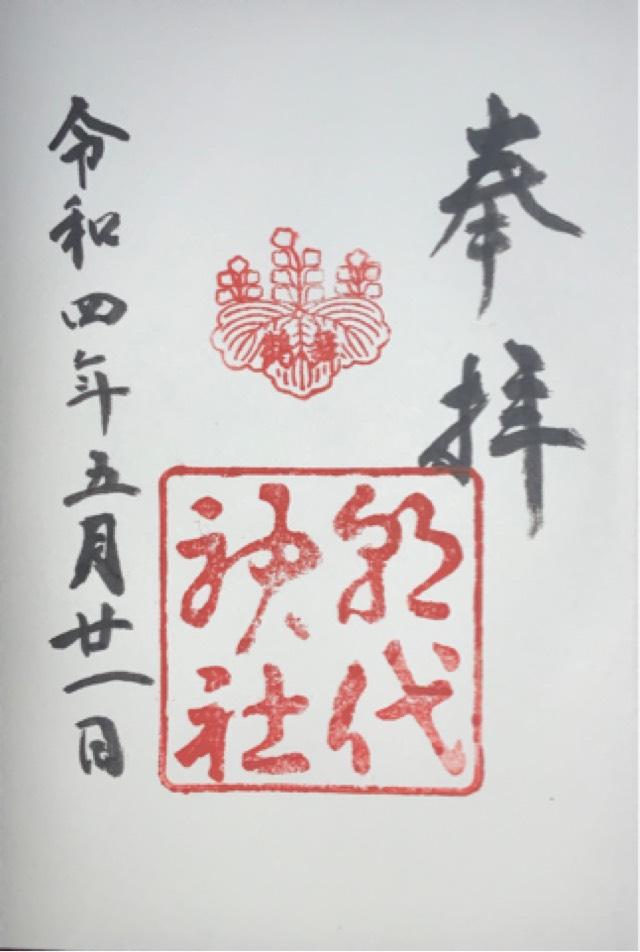 奉拝
舞鶴
朝代
神社
令和四年五月廿一日